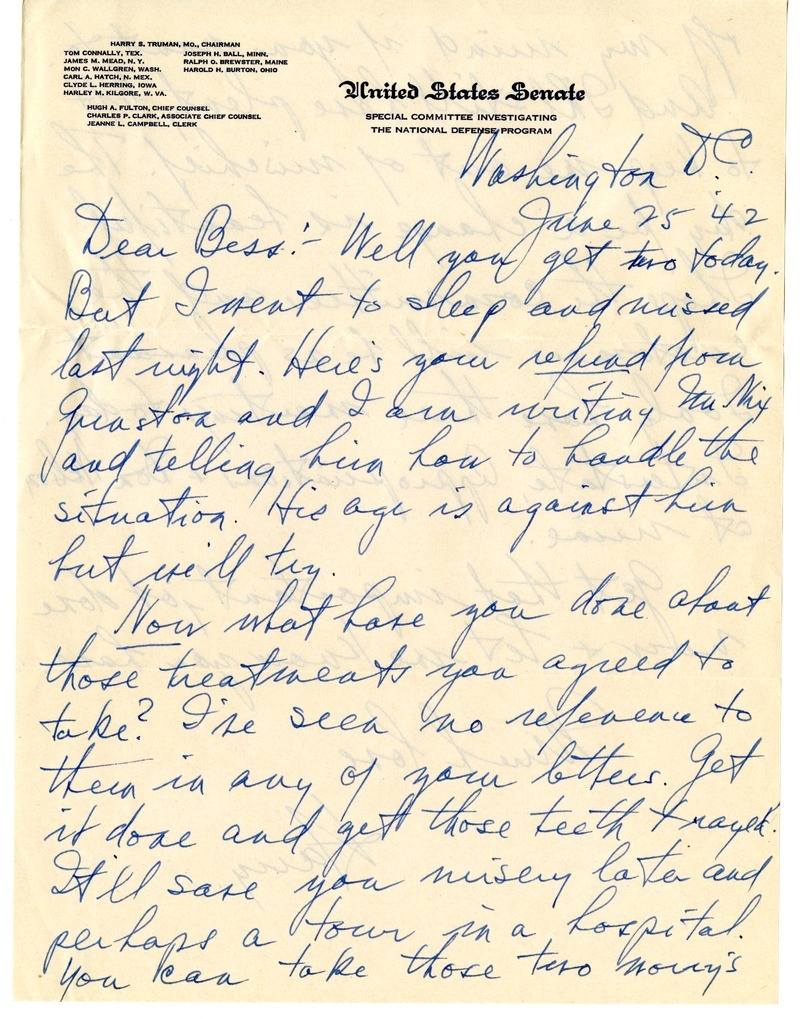 HARRY S. TRUMAN, MO., CHAIRMAN
TOM CONNALLY, TEX. JOSEPH H. BALL, MINN.
JAMES M. MEAD, N. Y. RALPH O. BREWSTER, MAINE
MON C. WALLGREN, WASH. HAROLD H. BURTON, OHIO
CARL A. HATCH, N. MEX.
CLYDE L. HERRING, IOWA
HARLEY M. KILGORE, W. VA.
HUGH A. FULTON, CHIEF COUNSEL
CHARLES P. CLARK, ASSOCIATE CHIEF COUNSEL
JEANNE L. CAMPBELL, CLERK
United States Senate
SPECIAL COMMITTEE INVESTIGATING
THE NATIONAL DEFENSE PROGRAM
Washington D.C.
June 25 '42
Dear Bess:- Well you get two today.
But I went to sleep and missed
last night. Here's your refund from
and I am writing
and telling him how to handle the
situation. His age is against him
but we'll try.
Now what have you done about
those treatments you agreed to
take? I've seen no reference to
them in any of your letters. Get
it done and get those teeth Xrayed.
It'll save you misery later and
perhaps a tour in a hospital.
You can take those two